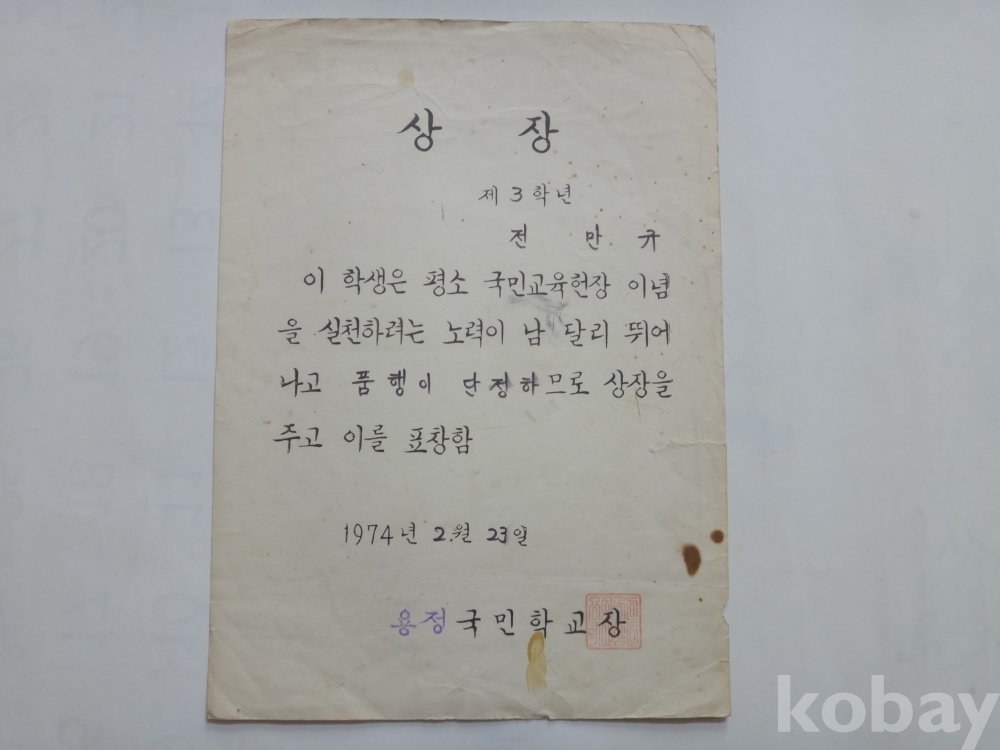 상 장
제 3 학년
전 만 규
이 학생은 평소 국민교육헌장 이념
을 실천하려는 노력이 남 달리 뛰어
나고 품행이 단정하므로 상장을
주고 이를 표창함
1974년 2.월 23일
용정국민학교장
kobay